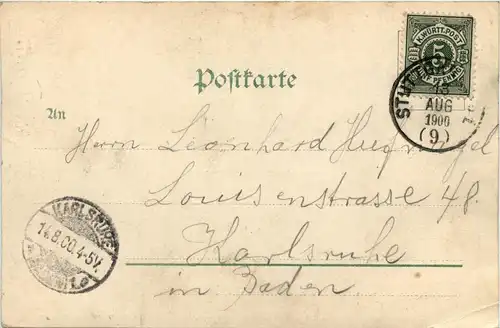 K. WÜRTT. POST
5
FÜNF PFENNIG
Postkarte
STUTTGART
13
AUG
1900
(9)
An
Herrn Leonhard
Louisenstrasse 48.
Karlsruhe
in Baden
KARLSRUHE
14.8.00.4-5V.